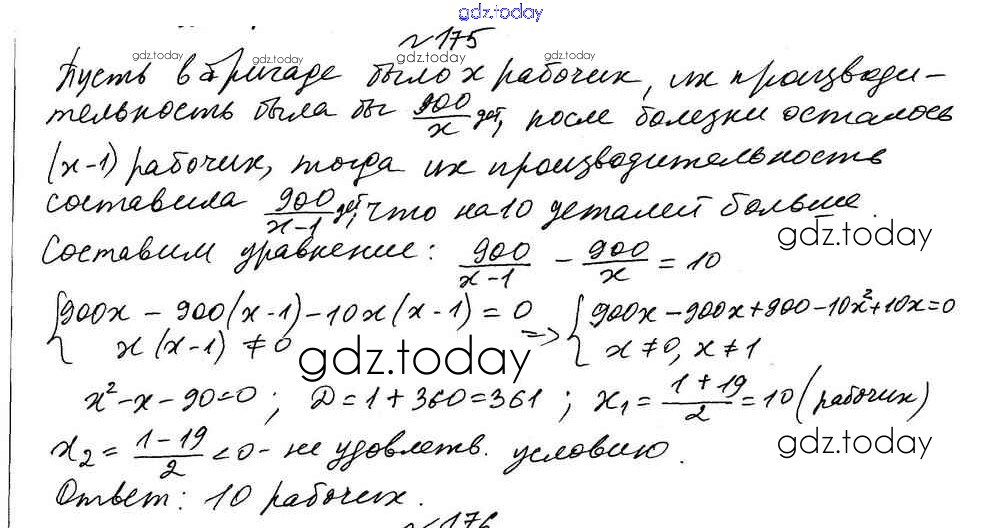 gdz.today
№175
gdz.today gdz.today gdz.today gdz.today
Пусть в бригаде было x рабочих, их производи-
тельность была бы 900/x дет, после болезни осталось
(x-1) рабочих, тогда их производительность
составила 900/(x-1) дет, что на 10 деталей больше.
gdz.today
Составим уравнение: 900/(x-1) - 900/x = 10
{900x - 900(x-1) - 10x(x-1) = 0 => {900x - 900x + 900 - 10x² + 10x = 0
x(x-1) ≠ 0 x ≠ 0, x ≠ 1
gdz.today
x² - x - 90 = 0; D = 1 + 360 = 361; x₁ = (1+19)/2 = 10 (рабочих)
x₂ = (1-19)/2 < 0 - не удовлетв. условию.
gdz.today
Ответ: 10 рабочих.
№176